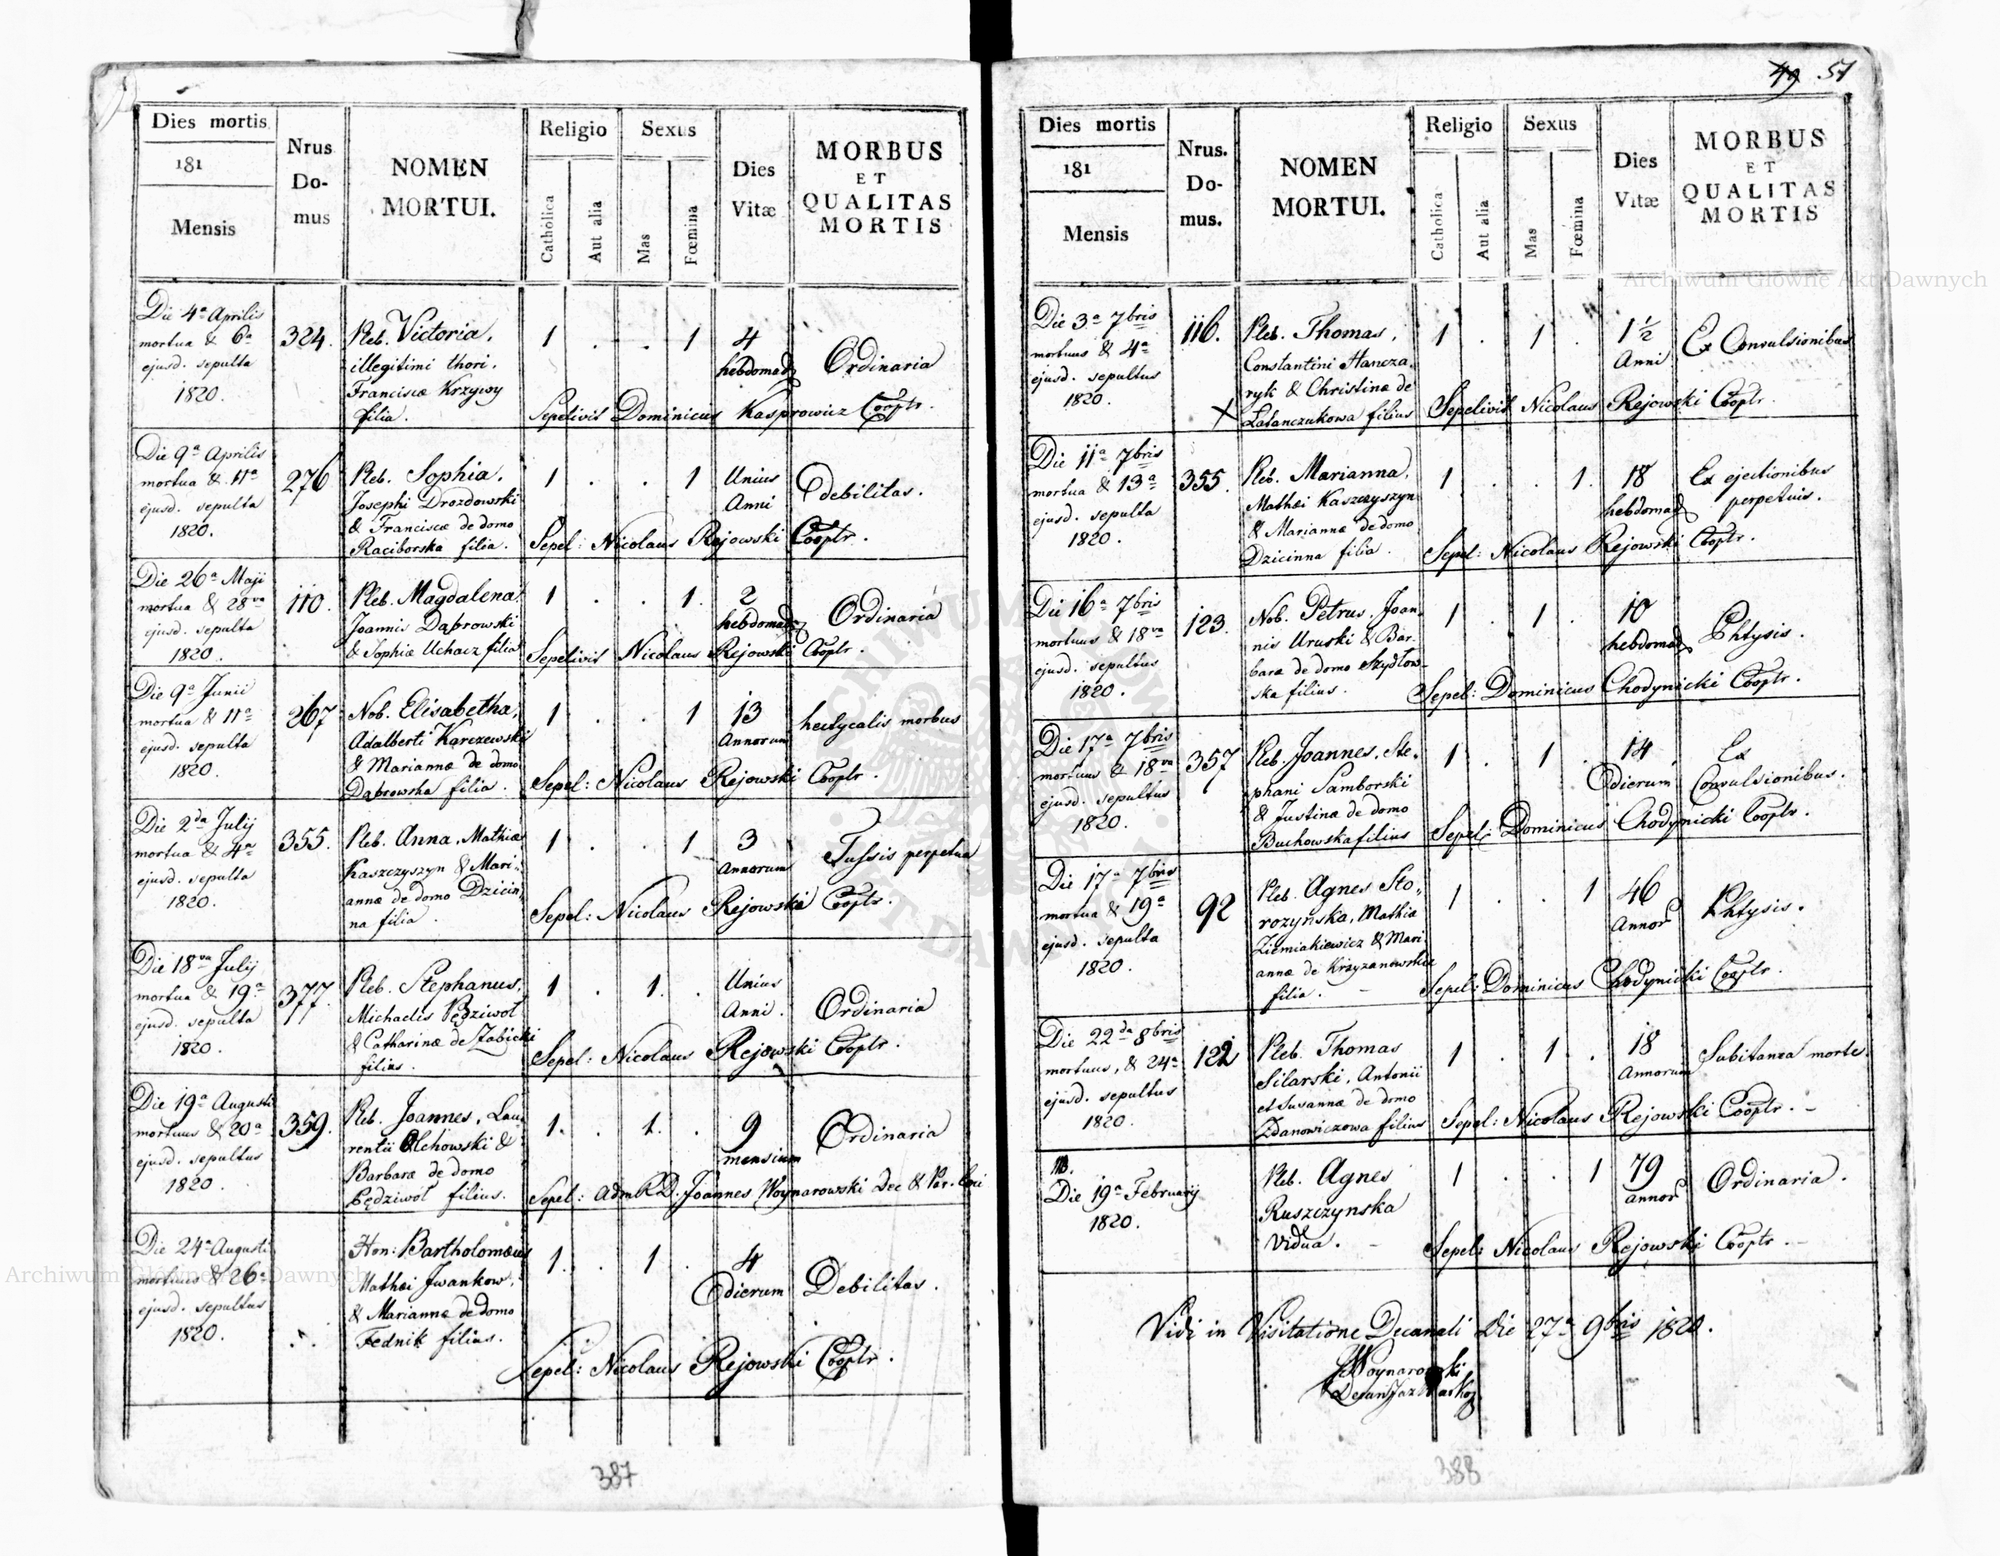 49 57
Dies mortis
181
Mensis
Nrus
Do-
mus
NOMEN
MORTUI.
Religio
Catholica
Aut alia
Sexus
Mas
Fœmina
Dies
Vitæ
MORBUS
ET
QUALITAS
MORTIS
Die 4ª Aprilis
mortua & 6ª
ejusd. sepulta
1820.
324.
Pleb. Victoria,
illegitimi thori,
Franciscæ Krzywy
filia.
1 . . 1
4
hebdomad
Ordinaria
Sepelivit Dominicus Kasprowicz Cooptr.
Die 9ª Aprilis
mortua & 11ª
ejusd. sepulta
1820.
276
Pleb. Sophia,
Josephi Drozdowski
& Franciscæ de domo
Raciborska filia.
1 . . 1
Unius
Anni
debilitas.
Sepel: Nicolaus Rejowski Cooptr.
Die 26ª Maji
mortua & 28va
ejusd. sepulta
1820.
110.
Pleb. Magdalena,
Joannis Dąbrowski
& Sophiæ Uchacz filia
1 . . 1.
2
hebdomad
Ordinaria
Sepelivit Nicolaus Rejowski Cooptr.
Die 9ª Junii
mortua & 11ª
ejusd. sepulta
1820.
267
Nob. Elisabetha,
Adalberti Karczewski
& Mariannæ de domo
Dąbrowska filia.
1 . . 1
13
Annorum
hectycalis morbus
Sepel: Nicolaus Rejowski Cooptr.
Die 2da Julij
mortua & 4ta
ejusd. sepulta
1820.
355.
Pleb. Anna, Mathiæ
Kaszczyszyn & Mari-
annæ de domo Dzicin-
na filia.
1 . . 1
3
Annorum
Tussis perpetua
Sepel: Nicolaus Rejowski Cooptr.
Die 18va Julij
mortua & 19ª
ejusd. sepulta
1820.
377.
Pleb. Stephanus,
Michaelis Pędziwot
& Catharinæ de Żabicki
filius.
1 . 1. .
Unius
Anni.
Ordinaria
Sepel: Nicolaus Rejowski Cooptr.
Die 19ª Augusti
mortuus & 20ª
ejusd. sepultus
1820.
359.
Pleb. Joannes, Lau-
rentii Olchowski &
Barbaræ de domo
Pędziwot filius.
1. . 1. .
9
mensium
Ordinaria
Sepel: Adm R.D. Joannes Woynarowski Dec & Par. Loci
Die 24ª Augusti
mortuus & 26ª
ejusd. sepultus
1820.
Hon: Bartholomæus
Mathæi Jwankow,
& Mariannæ de domo
Fednik filius.
1. . 1 .
4
dierum
Debilitas.
Sepel: Nicolaus Rejowski Cooptr.
387
Dies mortis
181
Mensis
Nrus.
Do-
mus.
NOMEN
MORTUI.
Religio
Catholica
Aut alia
Sexus
Mas
Fœmina
Dies
Vitæ
MORBUS
ET
QUALITAS
MORTIS
Die 3ª 7bris
mortuus & 4ª
ejusd. sepultus
1820.
116.
Pleb. Thomas,
Constantini Hancza-
ryk & Christinæ de
Łatanczukowa filius
1 . 1 .
1½
Anni
Ex Convulsionibus
X
Sepelivit Nicolaus Rejowski Cooptr.
Die 11ª 7bris
mortua & 13ª
ejusd. sepulta
1820.
355.
Pleb. Marianna,
Mathæi Kaszczyszyn
& Mariannæ de domo
Dzicinna filia.
1 . . 1.
18
hebdomad
Ex ejectionibus
perpetuis.
Sepel: Nicolaus Rejowski Cooptr.
Die 16ª 7bris
mortuus & 18va
ejusd. sepultus
1820.
123.
Nob. Petrus, Joan-
nis Uruski & Bar-
baræ de domo Szydłow-
ska filius.
1 . 1 .
10
hebdomad
Phtysis.
Sepel: Dominicus Chodynicki Cooptr.
Die 17ª 7bris
mortuus & 18va
ejusd. sepultus
1820.
357
Pleb. Joannes, Ste-
phani Samborski
& Justinæ de domo
Buchowska filius
1 . 1 .
14
dierum
Ex
Convulsionibus.
Sepel: Dominicus Chodynicki Cooptr.
Die 17ª 7bris
mortua & 19ª
ejusd. sepulta
1820.
92
Pleb. Agnes Sto-
rozynska, Mathiæ
Ziemiakiewicz & Mari
annæ de Krzyzanowskie
filia. -
1 . . 1
46
Annor
Phtysis.
Sepel: Dominicus Chodynicki Cooptr.
Die 22da 8bris
mortuus, & 24ª
ejusd. sepultus
1820.
122
Pleb. Thomas
Silarski, Antonii
et Susannæ de domo
Zdanowiczowa filius
1 . 1 .
18
Annorum
Subitanea morte.
Sepel: Nicolaus Rejowski Cooptr. -
Die 19ª Februarij
1820.
Pleb. Agnes
Ruszczynska
Vidua. -
1 . . 1
79
annor
Ordinaria.
Sepel: Nicolaus Rejowski Cooptr. -
Vidi in Visitatione Decanali die 27ª 9bris 1820.
Woynarowski
388
Archiwum Główne Akt Dawnych
Archiwum Główne Akt Dawnych